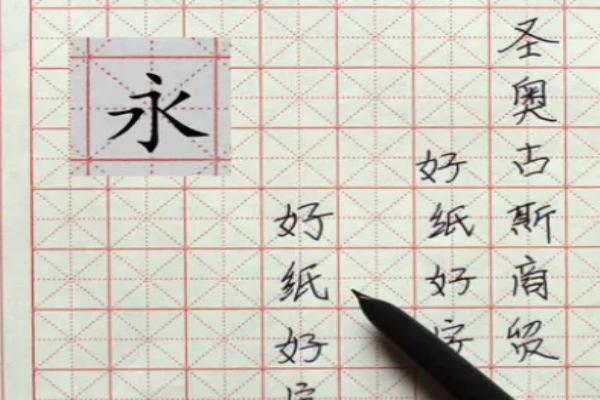 圣奥古斯商贸
好纸好字
好纸好字
永